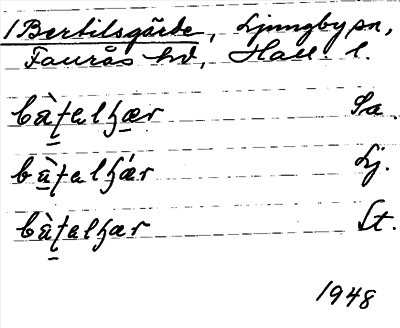 /Bertilsgärde, Ljungby sn,
Faurås hd, Hall. l.
bà̱ʈelʒæ̱r Sa.
bà̱ʈelʒár Lj.
bà̱ʈelʒær St.
1948